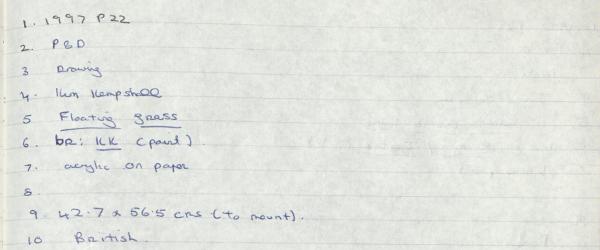 1. 1997 P22
2. P&D
3 Drawing
4. Kim Kempshall
5 Floating grass
6. br: KK (paint).
7. acrylic on paper
8
9 42.7 x 56.5 cms (to mount).
10 British.